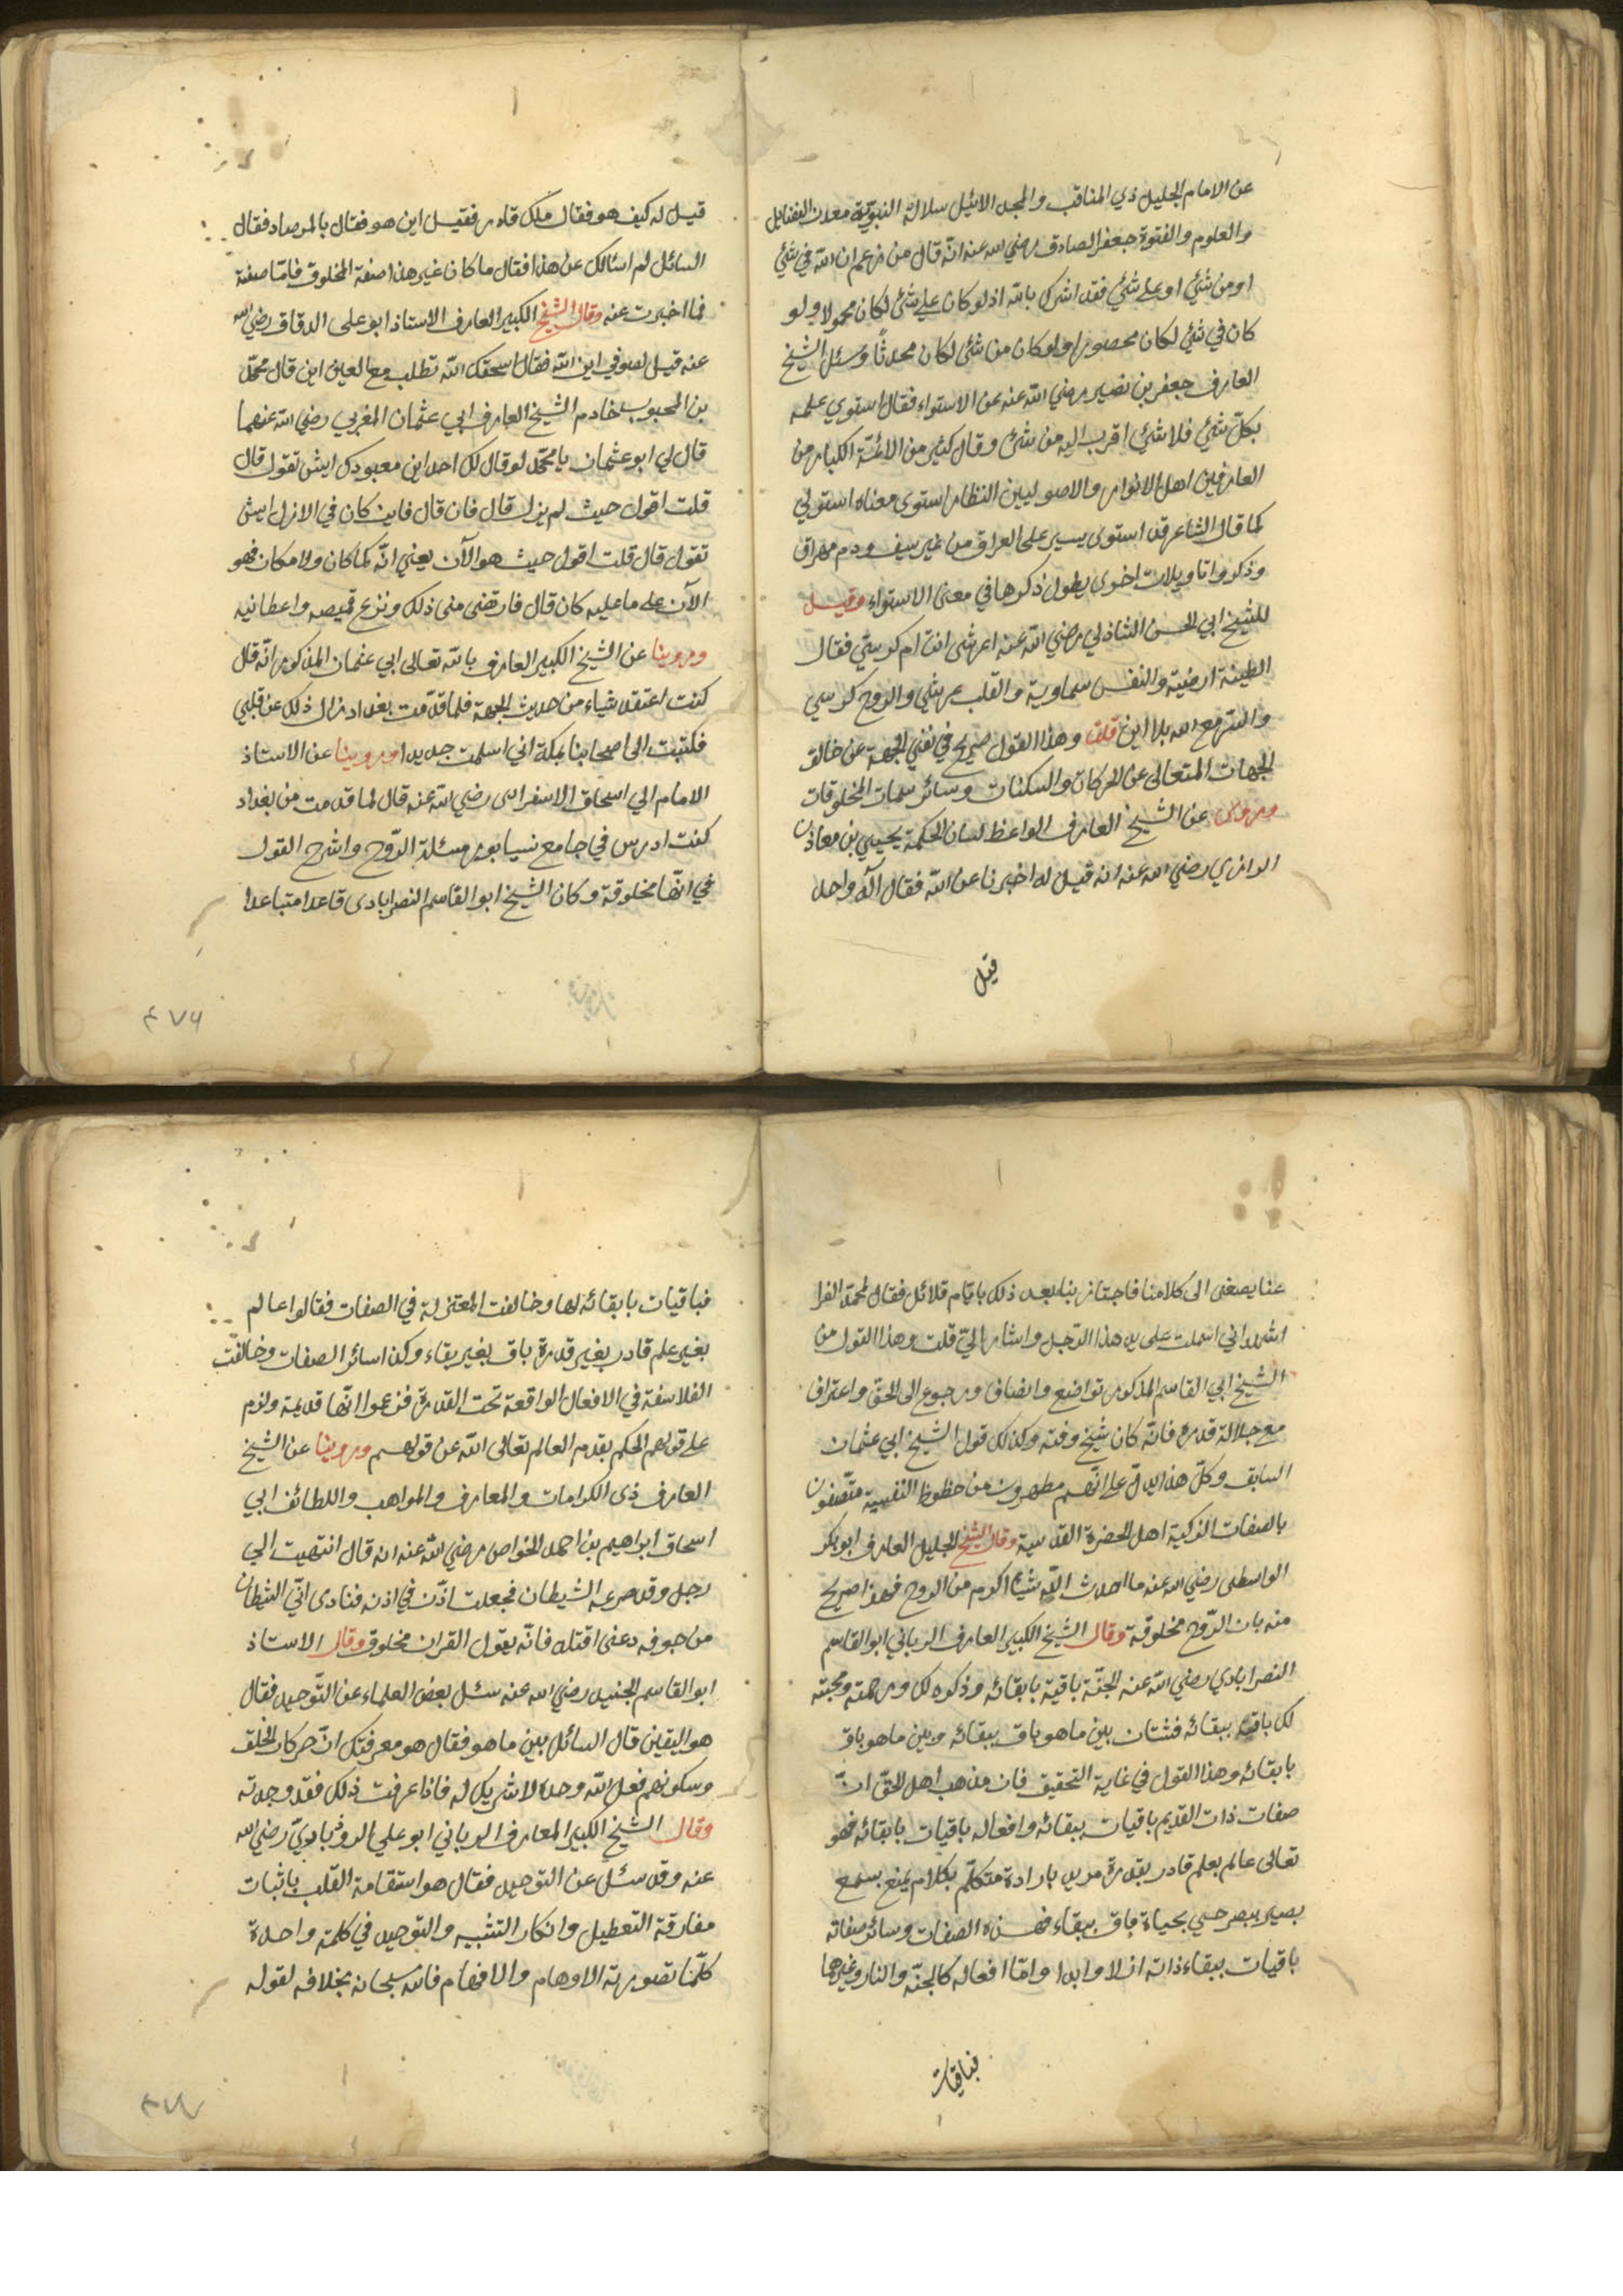 عن الامام الجليل ذي المناقب والمجد الاثيل سلالة النبوية معدن الفضايل
والعلوم والفتوة جعفر الصادق رضي الله عنه انه قال من زعم ان الله في شئ
او من شئ او على شئ فقد اشرك بالله اذ لو كان على شئ لكان محمولا ولو
كان في شئ لكان محصورا ولو كان من شئ لكان محدثا وسئل الشيخ
العارف جعفر بن نصير رضي الله عنه عن الاستواء فقال استوي علمه
بكل شئ فلا شئ اقرب اليه من شئ وقال كثير من الائمة الكبار من
العارفين اهل الانوار والاصوليين النظار استوى معناه استولي
كما قال الشاعر قد استوى بسير على العراق من غير سيف ودم مهراق
وذكروا تاويلات اخرى يطول ذكرها في معنى الاستواء وقيل
للشيخ ابي الحسن الشاذلي رضي الله عنه اعرشى انت ام كرسي فقال
الطينة ارضية والنفس سماوية والقلب عرشي والروح كرسي
والسر مع الله بلا اين قلت وهذا القول صريح في نفي الجهة عن خالق
الجهات المتعالى عن الحركات والسكنات وسائر سمات المخلوقات
وروينا عن الشيخ العارف الواعظ لسان الحكمة يحيي بن معاذ
الرازي رضي الله عنه انه قيل له اخبرنا عن الله فقال اله واحد
قيل
قيل له كيف هو فقال ملك قادر فقيل اين هو فقال بالمرصاد فقال
السائل لم اسئالك عن هذا فقال ما كان غير هذا صفة المخلوق فاما صفته
فما اخبرت عنه وقال الشيخ الكبير العارف الاستاذ ابو على الدقاق رضي الله
عنه قيل لصوفي اين الله فقال اسحقك الله تطلب مع العين اين قال محمد
بن المحبوب خادم الشيخ العارف ابي عثمان المغربي رضي الله عنهما
قال لي ابو عثمان يا محمد لو قال لك احد اين معبودك ايش تقول قال
قلت اقول حيث لم يزل قال فان قال فاين كان في الازل ايش
تقول قال قلت اقول حيث هو الآن يعني انه كما كان ولا مكان فهو
الآن على ما عليه كان قال فارتضى منى ذلك ونزع قميصه واعطانيه
وروينا عن الشيخ الكبير العارف بالله تعالى ابي عثمان المذكور انه قال
كنت اعتقد شياء من حديث الجهة فلما قدمت بغداد زال ذلك عن قلبي
فكتبت الى اصحابنا بمكة اني اسلمت جديدا وروينا عن الاستاذ
الامام ابي اسحاق الاسفراسى رضي الله عنه قال لما قدمت من بغداد
كنت ادرس في جامع نيسابور مسئلة الروح واشرح القول
في انها مخلوقة وكان الشيخ ابو القاسم النصرابادى قاعدا متباعدا
٤٧٦
عنا يصغى الى كلامنا فاجتاز بنا بعد ذلك بايام قلائل فقال لمحمد الفرا
اشهد اني اسلمت على يد هذا الرجل واشار الي قلت وهذا القول من
الشيخ ابي القاسم المذكور تواضع وانصاف ورجوع الى الحق واعتراف
مع جلالة قدره فانه كان شيخ وقته وكذلك قول الشيخ ابي عثمان
السابق وكل هذا يدل على انهم مطهرون من حظوظ النفسية متصفون
بالصفات الزكية اهل الحضرة القدسية وقال الشيخ الجليل العارف ابو بكر
الواسطى رضي الله عنه ما احدث الله شيئا اكرم من الروح فهذا صريح
منه بان الروح مخلوقة وقال الشيخ الكبير العارف الرباني ابو القاسم
النصرابادي رضي الله عنه الجنة باقية بابقائه وذكره لك ورحمته ومحبته
لك باقية ببقائه فشتان بين ما هو باق ببقائه وبين ما هو باق
بابقائه وهذا القول في غاية التحقيق فان مذهب اهل الحق ان
صفات ذات القديم باقيات ببقائه وافعاله باقيات بابقائه فهو
تعالى عالم بعلم قادر بقدرة مريد بارادة متكلم بكلام سميع بسمع
بصير ببصر حي بحياة باق ببقاء فهذه الصفات وسائر صفاته
باقيات ببقاء ذاته ازلا وابدا واما افعاله كالجنة والنار وغيرهما
فباقيات
فباقيات بابقائه لها وخالفت المعتزلة في الصفات فقالوا عالم
بغير علم قادر بغير قدرة باق بغير بقاء وكذا سائر الصفات وخالفت
الفلاسفة في الافعال الواقعة تحت القدرة فزعموا انها قديمة ولزم
على قولهم الحكم بقدم العالم تعالى الله عن قولهم وروينا عن الشيخ
العارف ذى الكرامات والمعارف والمواهب واللطائف ابي
اسحاق ابراهيم بن احمد الخواص رضي الله عنه انه قال انتهيت الي
رجل وقد صرعه الشيطان فجعلت اذن في اذنه فنادى اني الشيطان
من جوفه دعنى اقتله فانه يقول القران مخلوق وقال الاستاذ
ابو القاسم الجنيد رضي الله عنه سئل بعض العلماء عن التوحيد فقال
هو اليقين قال السائل بين ما هو فقال هو معرفتك ان حركات الخلق
وسكونهم فعل الله وحده لا شريك له فاذا عرفت ذلك فقد وجدته
وقال الشيخ الكبير العارف الرباني ابو علي الروذباري رضي الله
عنه وقد سئل عن التوحيد فقال هو استقامة القلب باثبات
مفارقة التعطيل وانكار التشبيه والتوحيد في كلمة واحدة
كلما تصورته الاوهام والافهام فالله سبحانه بخلافه لقوله